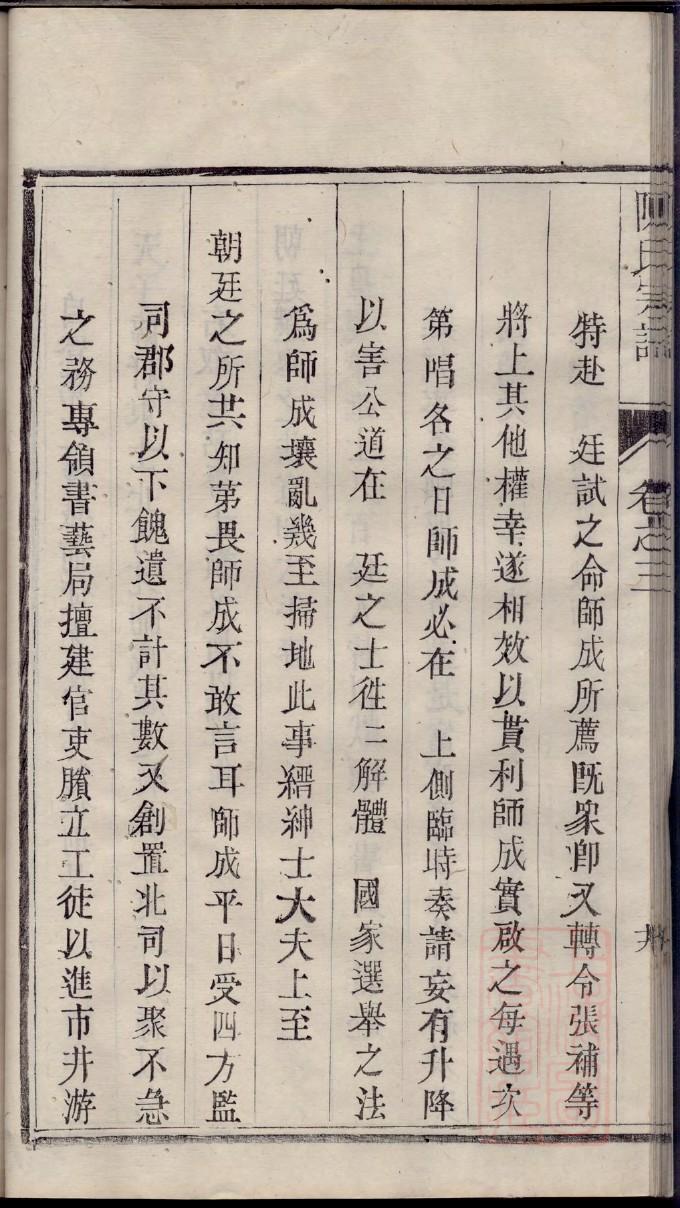 陳氏宗譜
卷之三
特赴 廷試之命師成所薦既衆卽又轉令張補等
將上其他權幸遂相效以貰利師成實啟之每遇次
第唱名之日師成必在 上側臨時奏請妄有升降
以害公道在 廷之士徃二解體 國家選舉之法
爲師成壞亂幾至掃地此事縉紳士大夫上至
朝廷之所共知苐畏師成不敢言耳師成平日受四方監
司郡守以下餽遺不計其數又創置北司以聚不急
之務專領書藝局擅建官吏牘立工徒以進市井游